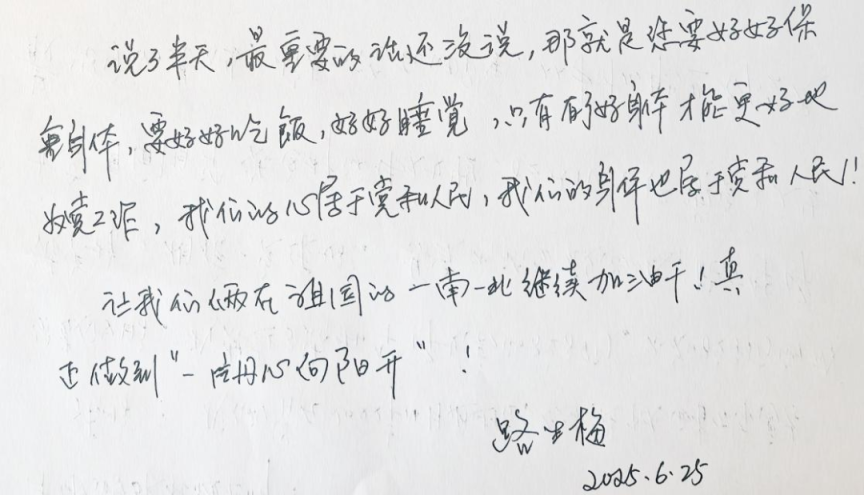 说了半天，最重要的话还没说，那就是您要好好保
重身体，要好好吃饭，好好睡觉，只有有了好身体才能更好地
为党工作，我们的心属于党和人民，我们的身体也属于党和人民！
让我们俩在祖国的一南一北继续加油干！真
正做到“一片丹心向阳开”！
路生梅
2025.6.25